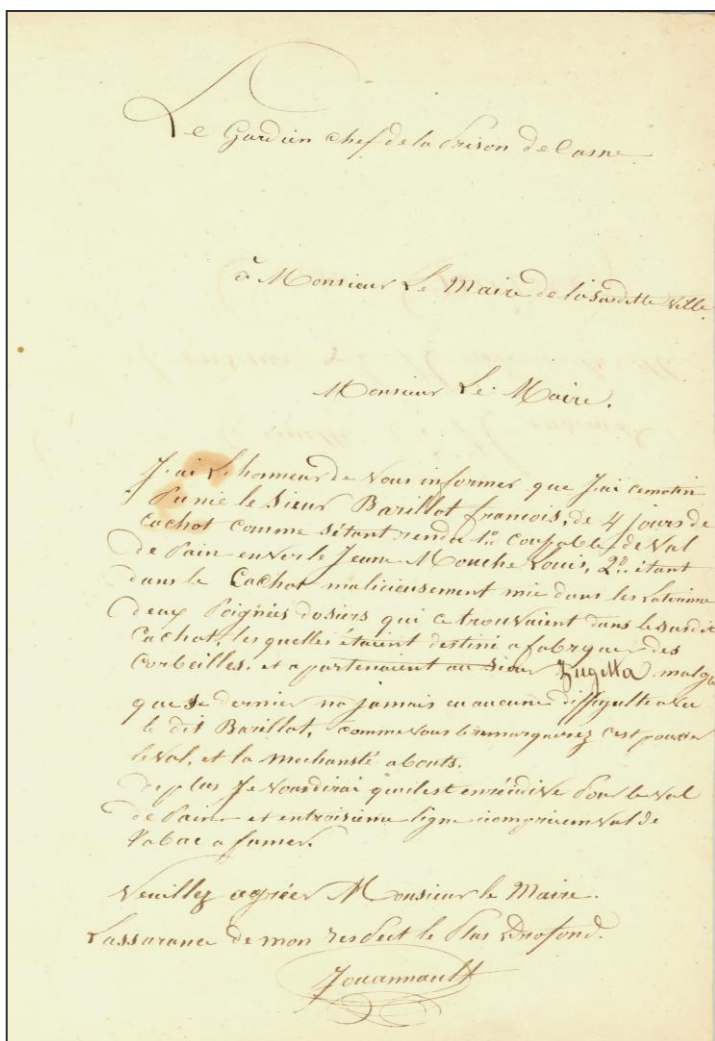 Le Gardien chef de la Prison de Casne
à Monsieur Le Maire de la susditte ville.
Monsieur Le Maire.
J'ai L'honneur de vous informer que J'ai cematin
Punie le sieur Barillot francois, de 4 jours de
Cachot comme s'étant rendu 1º. Coupable de Val
de Pain enver le Jeune Mouche Louis, 2º. étant
dans le Cachot malicieusement mie dans les Latrine
deux Poignées dosiers qui ce trouvaient dans le susdit
Cachot, les quelles étaient destiné a fabryquer des
Corbeilles. et apartenaient au sieur Zugetta, malgré
que se dernier na jamais eu aucune diffigulté avec
le dit Barillot, Comme vous le remarquerez c'est pousser
le Val, et la mechansté abouts.
de plus Je vous dirai qu'il est enrécidive Pour le Val
de Pain et entroisième ligne icompri un Val de
Tabac a fumer.
Veuillez agréer Monsieur le Maire.
L'assurance de mon respect le Plus Profond.
Jouannault